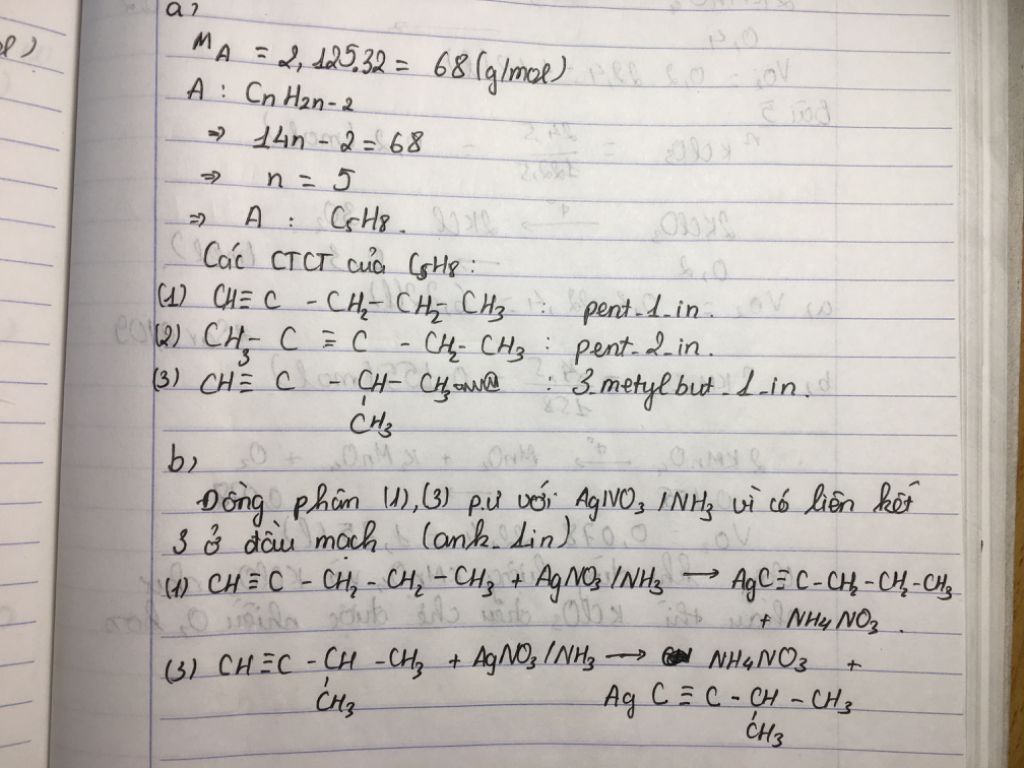 a,
MA = 2,125.32 = 68 (g/mol)
A : CnH2n-2
⇒ 14n - 2 = 68
⇒ n = 5
⇒ A : C5H8.
Các CTCT của C5H8 :
(1) CH≡C - CH2 - CH2 - CH3 : pent-1-in.
(2) CH3 - C ≡ C - CH2 - CH3 : pent-2-in.
(3) CH≡C - CH - CH3 : 3-metylbut-1-in.
CH3
b,
Đồng phân (1),(3) p.ư với AgNO3/NH3 vì có liên kết
3 ở đầu mạch (ank-1in)
(1) CH≡C - CH2 - CH2 - CH3 + AgNO3/NH3 → AgC≡C-CH2-CH2-CH3
+ NH4NO3.
(3) CH≡C - CH - CH3 + AgNO3/NH3 → NH4NO3 +
CH3
AgC≡C - CH - CH3
CH3